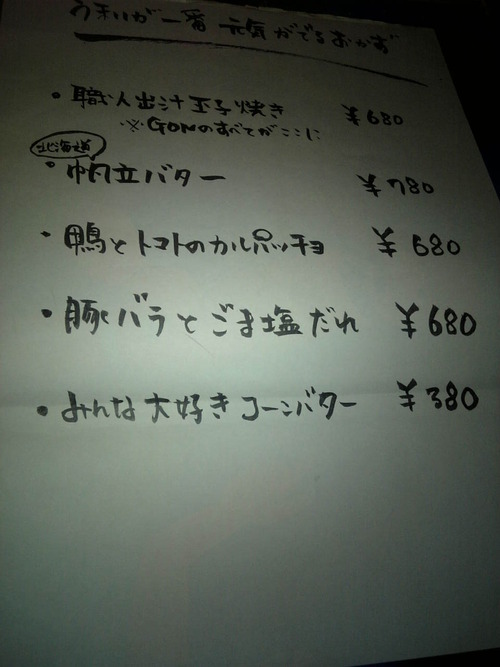 う利が一番 元気がでるおかず
・職人出汁玉子焼き ¥680
※GONのすべてがここに
北海道
・帆立バター ¥780
・鴨とトマトのカルパッチョ ¥680
・豚バラとごま塩だれ ¥680
・みんな大好きコーンバター ¥380